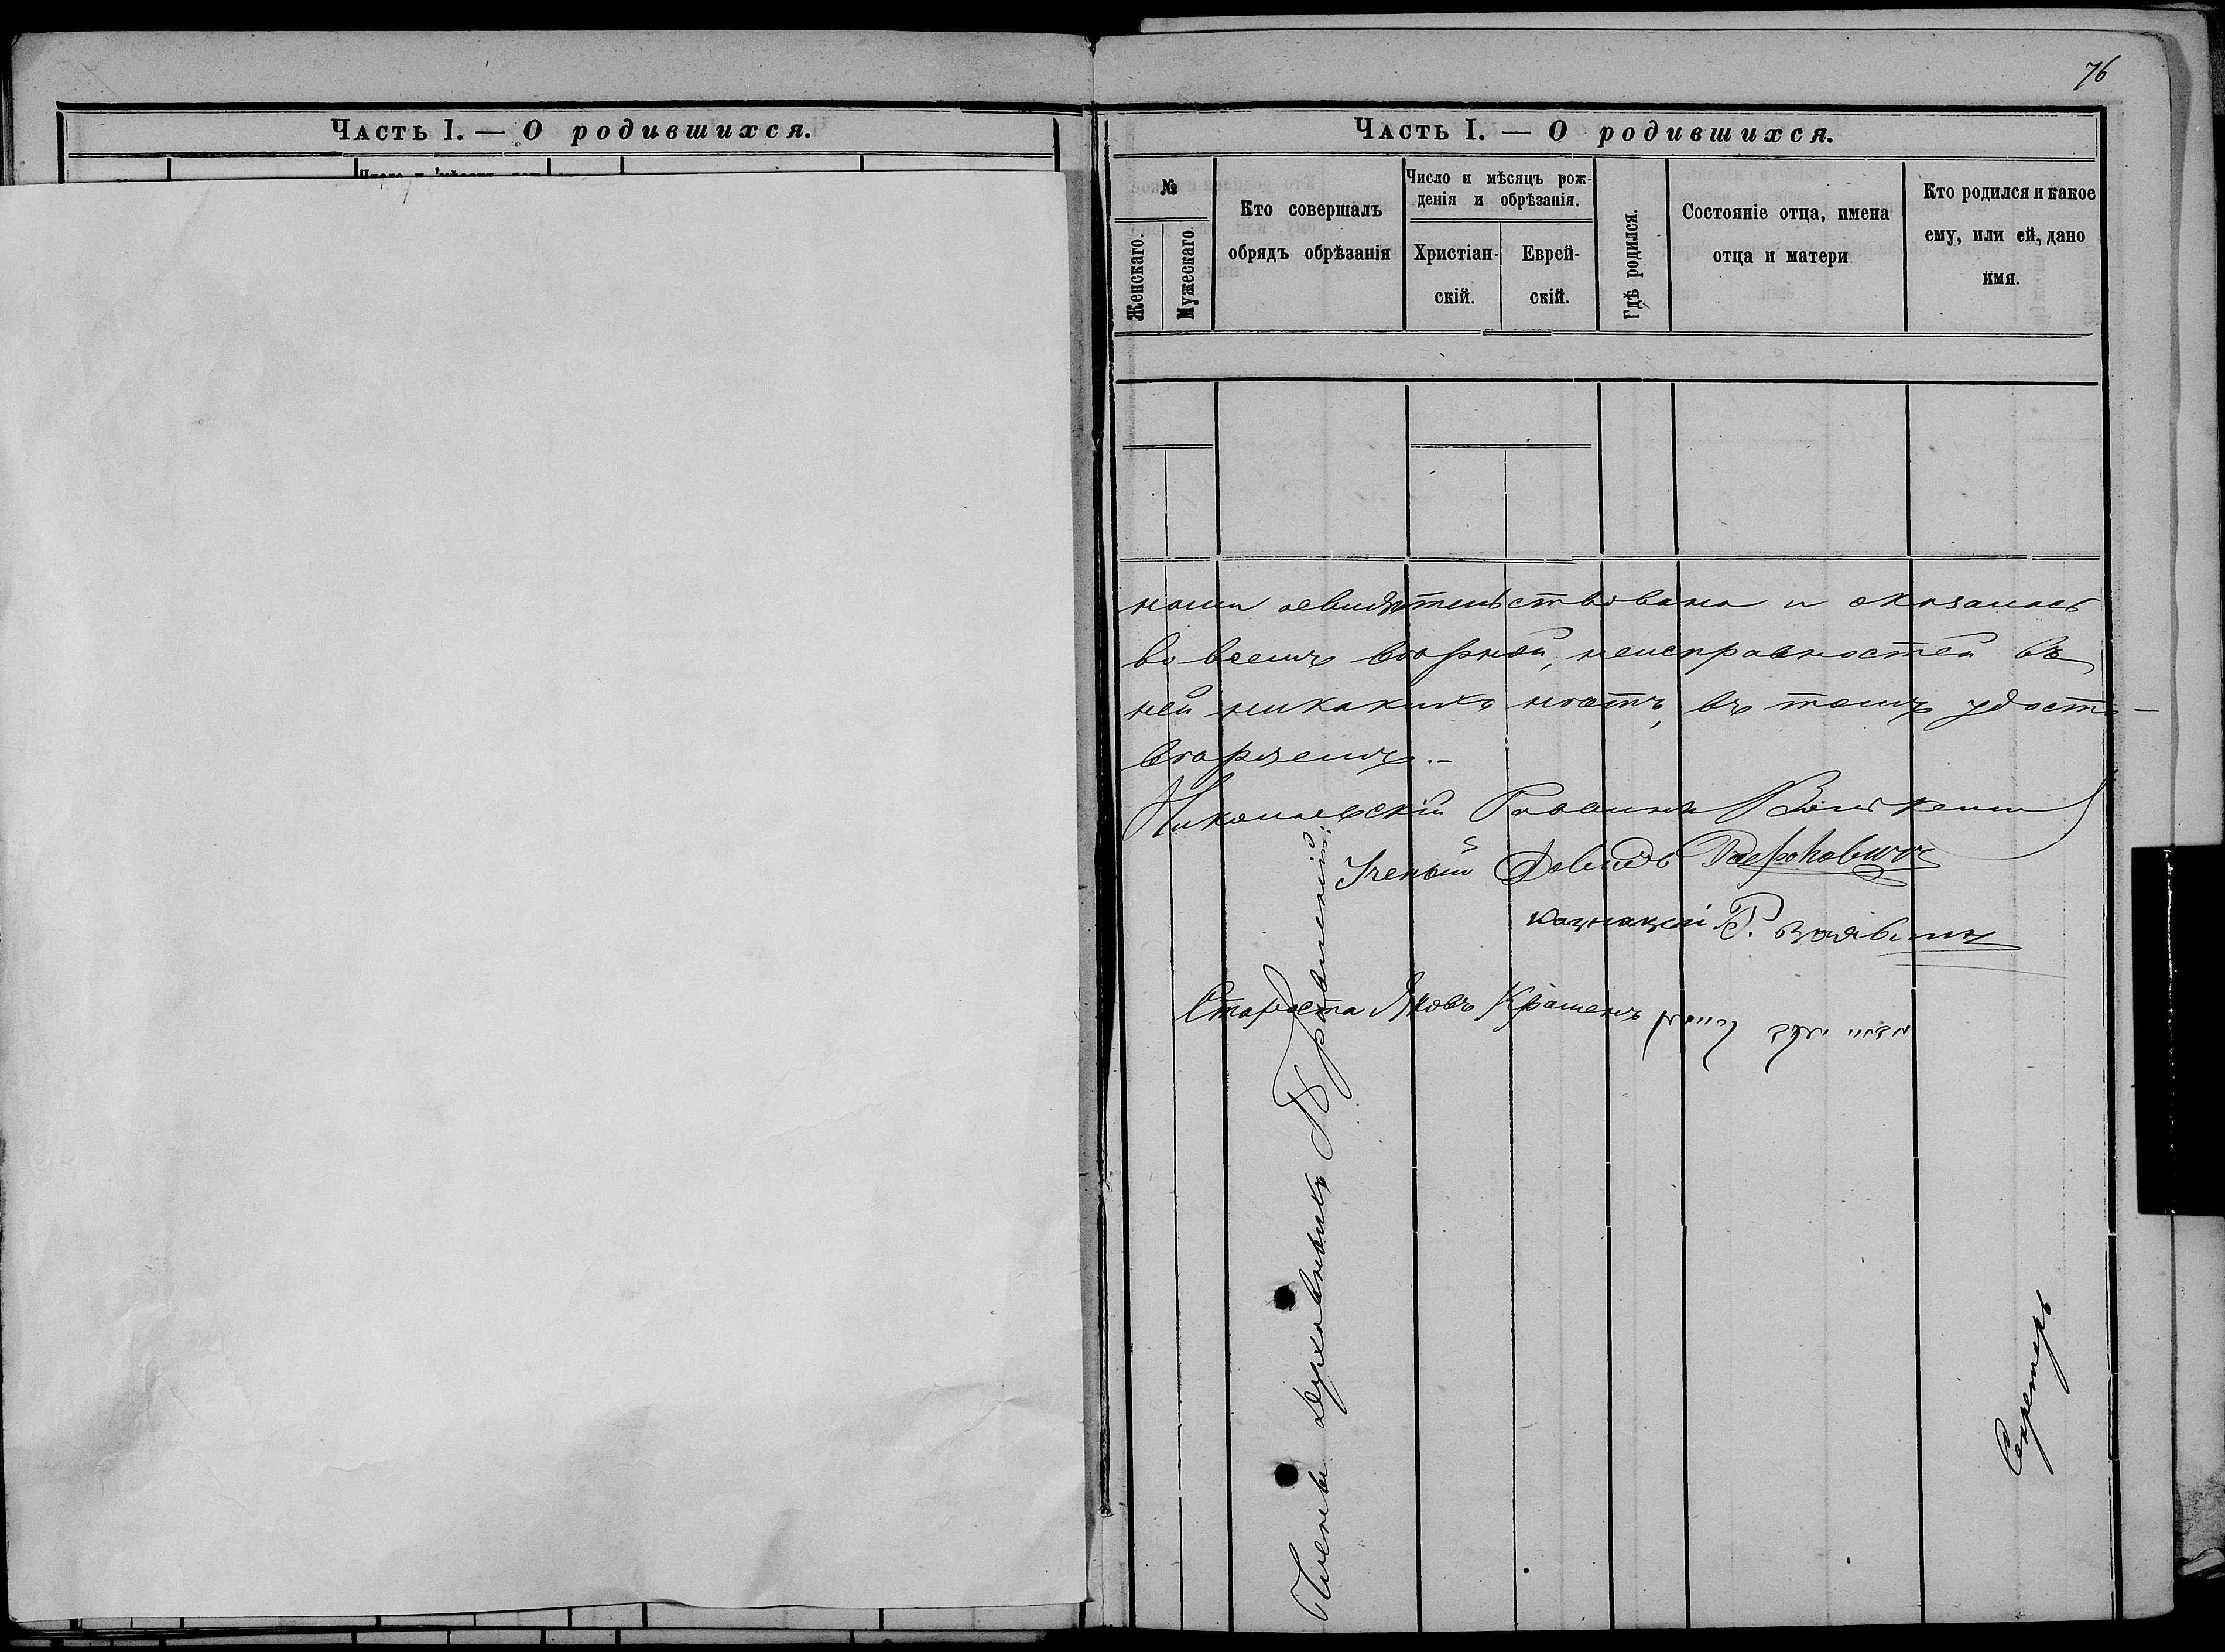 76
Часть I. — О родившихся.
Часть I. — О родившихся.
№
Женскаго.
Мужескаго.
Кто совершалъ
обрядъ обрѣзанія
Число и мѣсяцъ рож-
денія и обрѣзанія.
Христіан-
скій.
Еврей-
скій.
Гдѣ родился.
Состояніе отца, имена
отца и матери
Кто родился и какое
ему, или ей, дано
имя.
нами освидѣтельствована и оказалась
во всемъ вѣрной, неисправностей въ
ней никакихъ нѣтъ, въ томъ удосто-
вѣряемъ.-
Николаевскій Раввинъ
Ученый Давидъ
казначей
Староста Яковъ Крашенъ
Члены Духовныхъ Правленій:
Секретарь